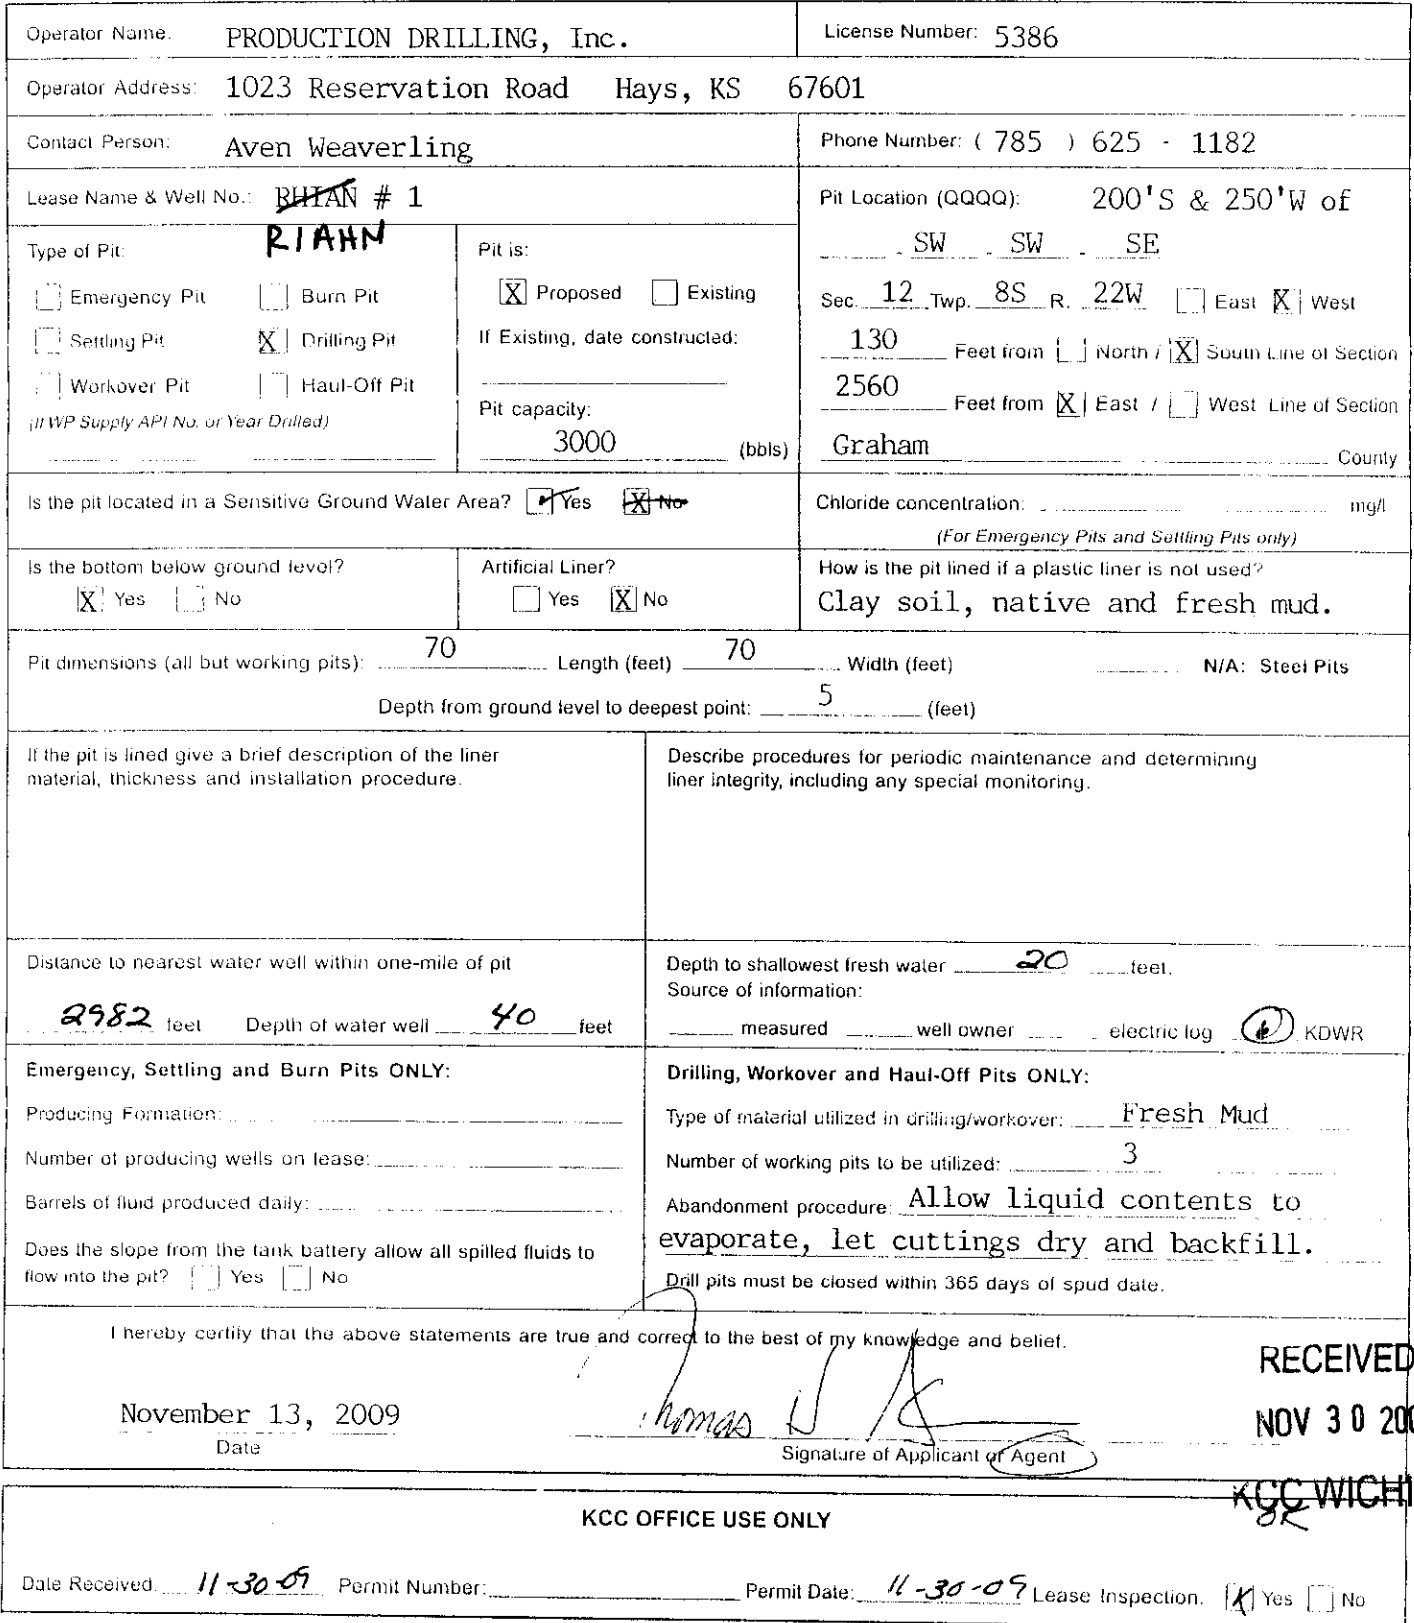 Operator Name: PRODUCTION DRILLING, Inc. License Number: 5386
Operator Address: 1023 Reservation Road Hays, KS 67601
Contact Person: Aven Weaverling Phone Number: ( 785 ) 625 - 1182
Lease Name & Well No.: RHIAN # 1
RIAHN
Pit Location (QQQQ): 200'S & 250'W of
SW SW SE
Sec. 12 Twp. 8S R. 22W East X West
130 Feet from North / X South Line of Section
2560 Feet from X East / West Line of Section
Graham County
Type of Pit:
Emergency Pit Burn Pit
Settling Pit X Drilling Pit
Workover Pit Haul-Off Pit
(If WP Supply API No. or Year Drilled)
Pit is:
X Proposed Existing
If Existing, date constructed:
Pit capacity:
3000 (bbls)
Is the pit located in a Sensitive Ground Water Area? Yes X No
Chloride concentration: mg/l
(For Emergency Pits and Settling Pits only)
Is the bottom below ground level?
X Yes No
Artificial Liner?
Yes X No
How is the pit lined if a plastic liner is not used?
Clay soil, native and fresh mud.
Pit dimensions (all but working pits): 70 Length (feet) 70 Width (feet) N/A: Steel Pits
Depth from ground level to deepest point: 5 (feet)
If the pit is lined give a brief description of the liner
material, thickness and installation procedure.
Describe procedures for periodic maintenance and determining
liner integrity, including any special monitoring.
Distance to nearest water well within one-mile of pit
2982 feet Depth of water well 40 feet
Depth to shallowest fresh water 20 feet.
Source of information:
measured well owner electric log KDWR
Emergency, Settling and Burn Pits ONLY:
Producing Formation:
Number of producing wells on lease:
Barrels of fluid produced daily:
Does the slope from the tank battery allow all spilled fluids to
flow into the pit? Yes No
Drilling, Workover and Haul-Off Pits ONLY:
Type of material utilized in drilling/workover: Fresh Mud
Number of working pits to be utilized: 3
Abandonment procedure: Allow liquid contents to
evaporate, let cuttings dry and backfill.
Drill pits must be closed within 365 days of spud date.
I hereby certify that the above statements are true and correct to the best of my knowledge and belief.
RECEIVED
November 13, 2009 Thomas
NOV 30 200
Date Signature of Applicant or Agent
KCC WICHI
KCC OFFICE USE ONLY
Date Received: 11-30-09 Permit Number: Permit Date: 11-30-09 Lease Inspection: X Yes No